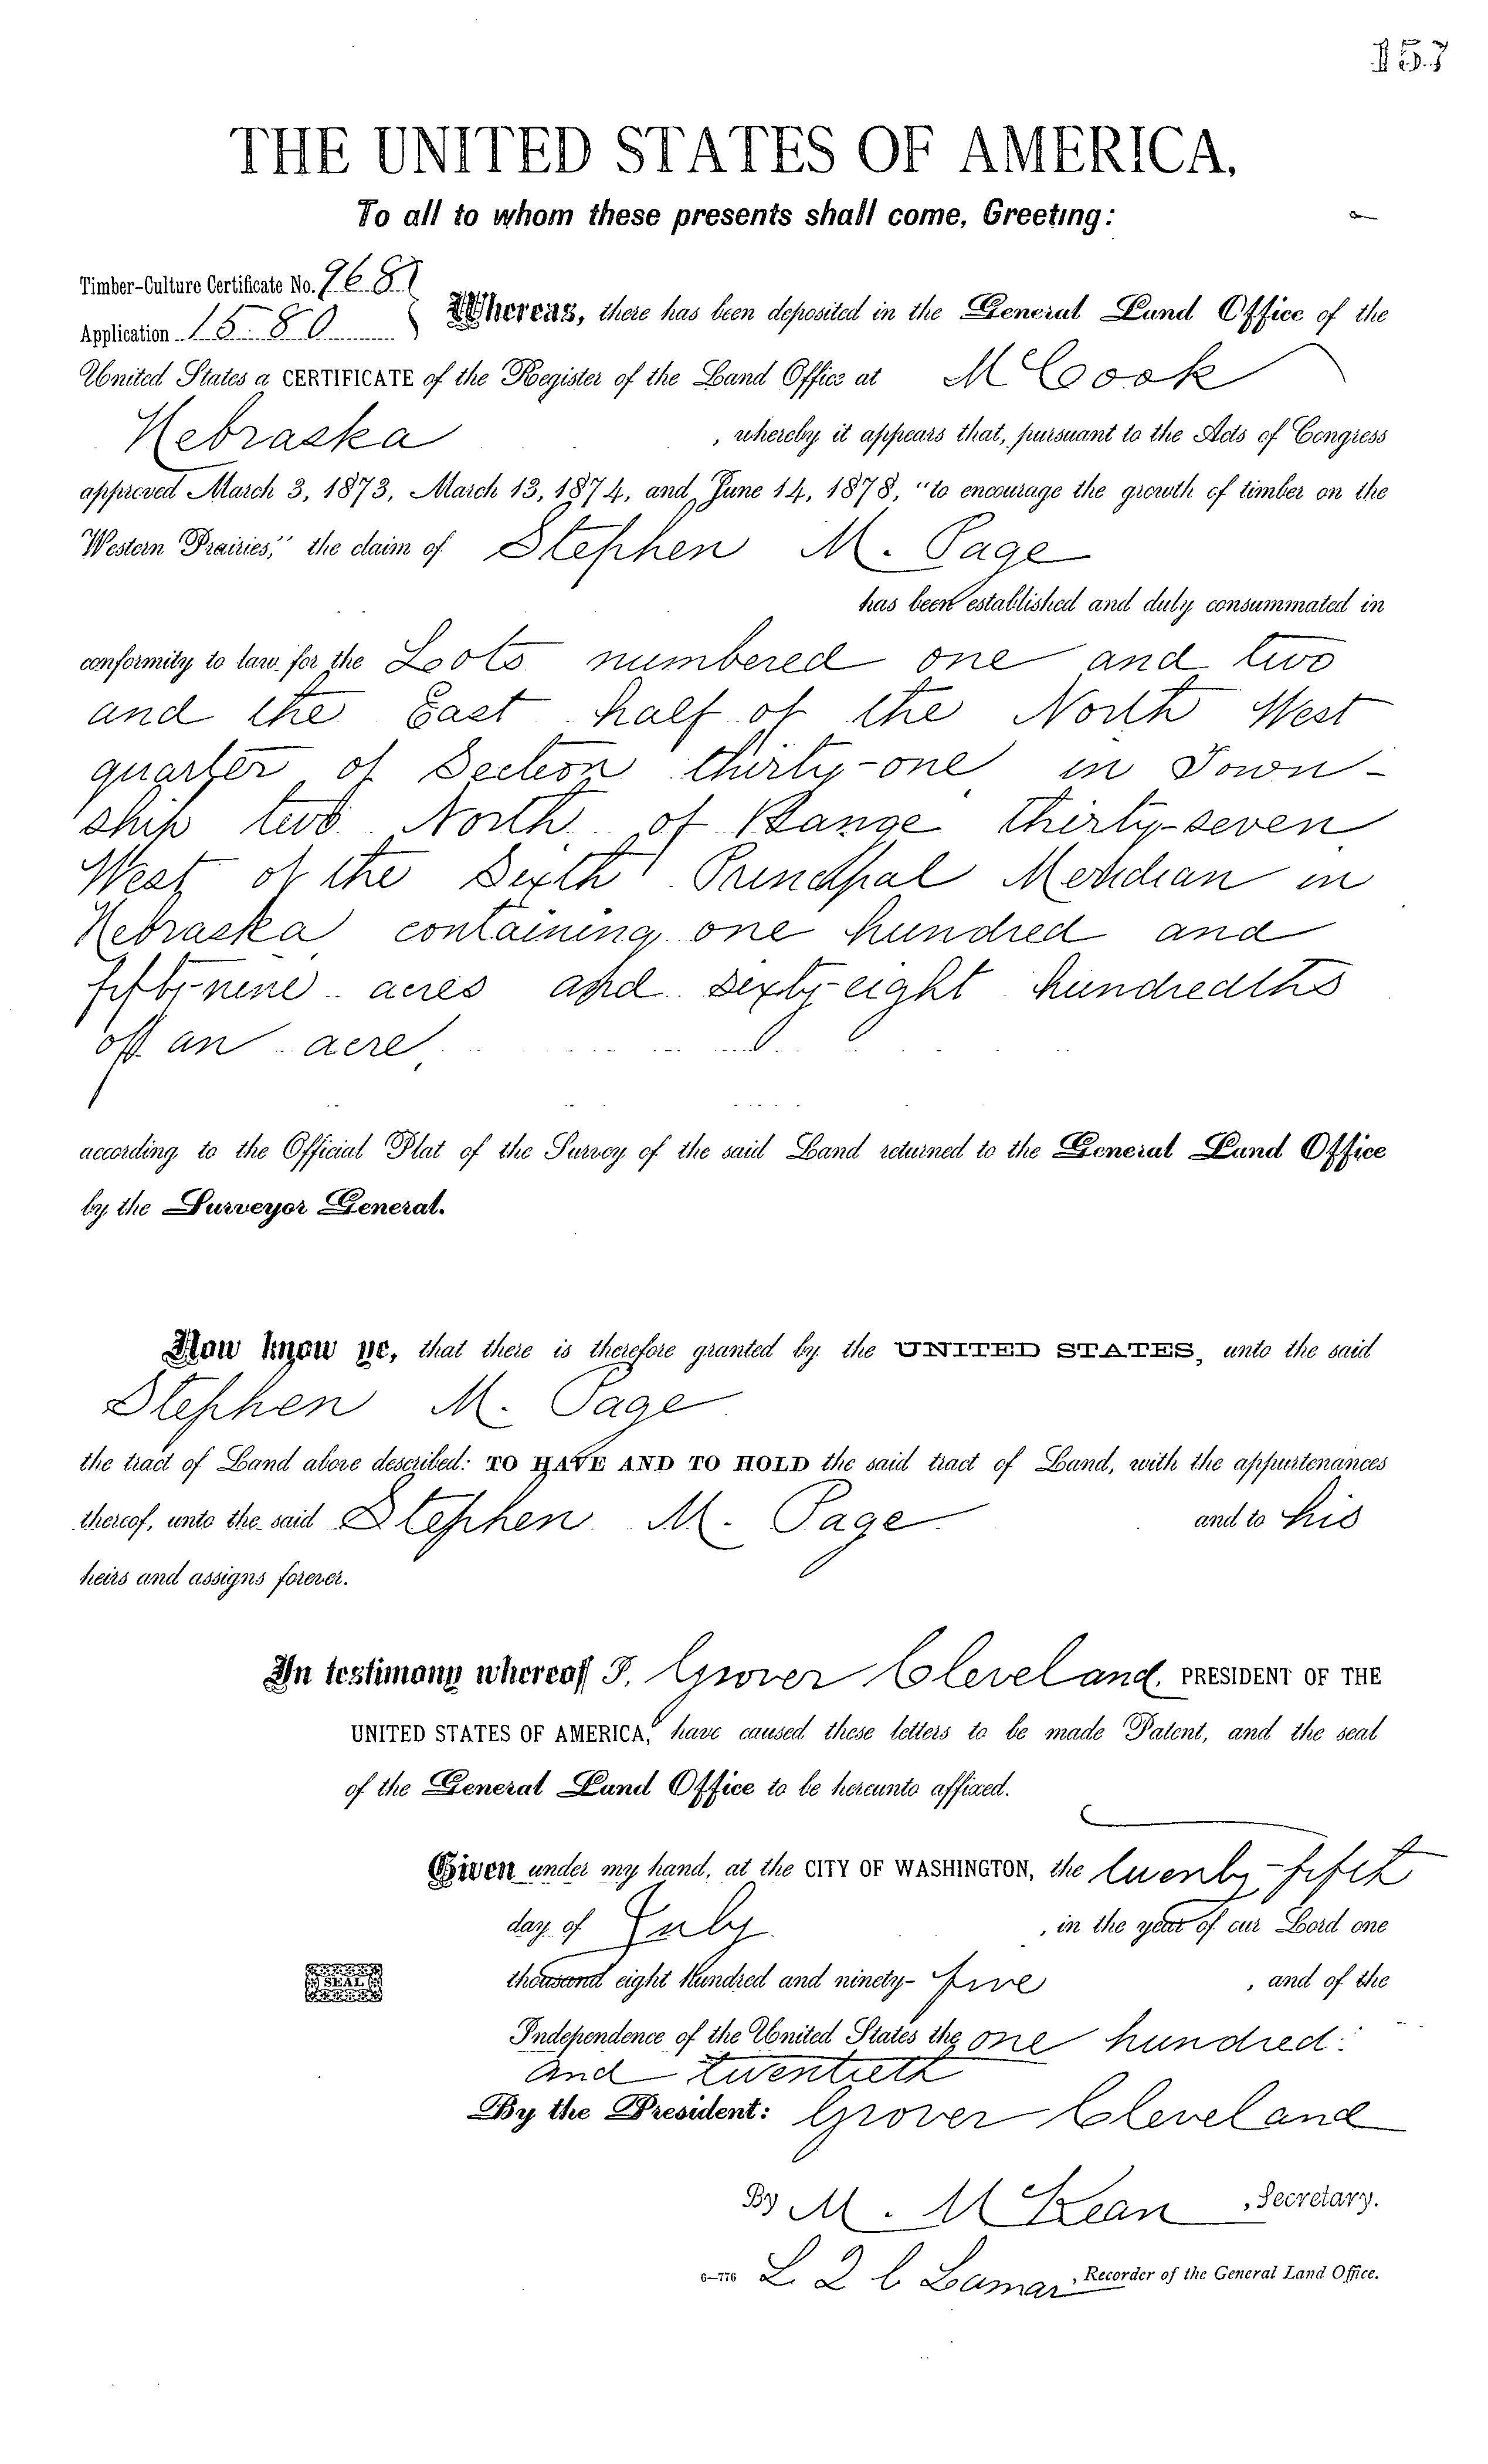 157
THE UNITED STATES OF AMERICA,
To all to whom these presents shall come, Greeting:
Timber-Culture Certificate No. 768
Application 1580
Whereas, there has been deposited in the General Land Office of the
United States a CERTIFICATE of the Register of the Land Office at McCook
Nebraska, whereby it appears that, pursuant to the Acts of Congress
approved March 3, 1873, March 13, 1874, and June 14, 1878, "to encourage the growth of timber on the
Western Prairies," the claim of Stephen M. Page
has been established and duly consummated in
conformity to law for the Lots numbered one and two
and the East half of the North West
quarter of Section thirty-one in Town-
ship two North of Range thirty-seven
West of the Sixth Principal Meridian in
Nebraska containing one hundred and
fifty-nine acres and sixty-eight hundredths
of an acre
according to the Official Plat of the Survey of the said Land returned to the General Land Office
by the Surveyor General.
Now know ye, that there is therefore granted by the UNITED STATES, unto the said
Stephen M. Page
the tract of Land above described: TO HAVE AND TO HOLD the said tract of Land, with the appurtenances
thereof, unto the said Stephen M. Page and to his
heirs and assigns forever.
In testimony whereof I, Grover Cleveland, PRESIDENT OF THE
UNITED STATES OF AMERICA, have caused these letters to be made Patent, and the seal
of the General Land Office to be hereunto affixed.
Given under my hand, at the CITY OF WASHINGTON, the twenty-fifth
day of July, in the year of our Lord one
SEAL
thousand eight hundred and ninety-five, and of the
Independence of the United States the one hundred
and twentieth
By the President: Grover Cleveland
By M. McKean, Secretary.
6-776 L. Q C Lamar, Recorder of the General Land Office.